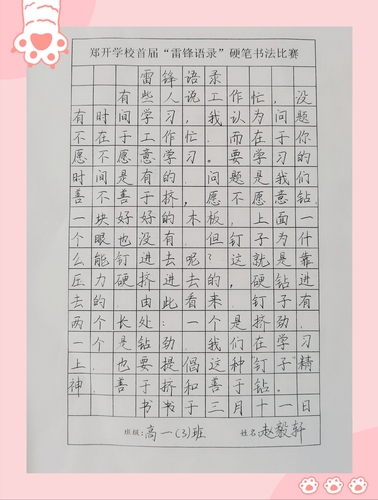 郑开学校首届“雷锋语录”硬笔书法比赛
雷锋语录
有些人说工作忙,没
有时间学习,我认为问题
不在于工作忙.而在于你
愿不愿意学习。要学习的
时间是有的.问题是我们
善不善于挤,愿不愿意钻.
一块好好的木板,上面一
个眼也没有.但钉子为什
么能钉进去呢?这就是靠
压力硬挤进去的,硬钻进
去的.由此看来.钉子有
两个长处:一个是挤劲.
一个是钻劲.我们在学习
上.也要提倡这种“钉子”精
神.善于挤和善于钻。
书书于三月十一日
班级:高一(3)班 姓名:赵毅轩